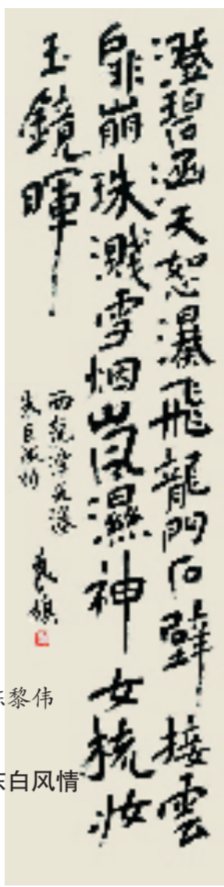 澄碧涵天怒瀑飛龍門石壁接雲
扉崩珠濺雪烟嵐濕神女梳妝
玉鏡暉
黎伟
东白风情